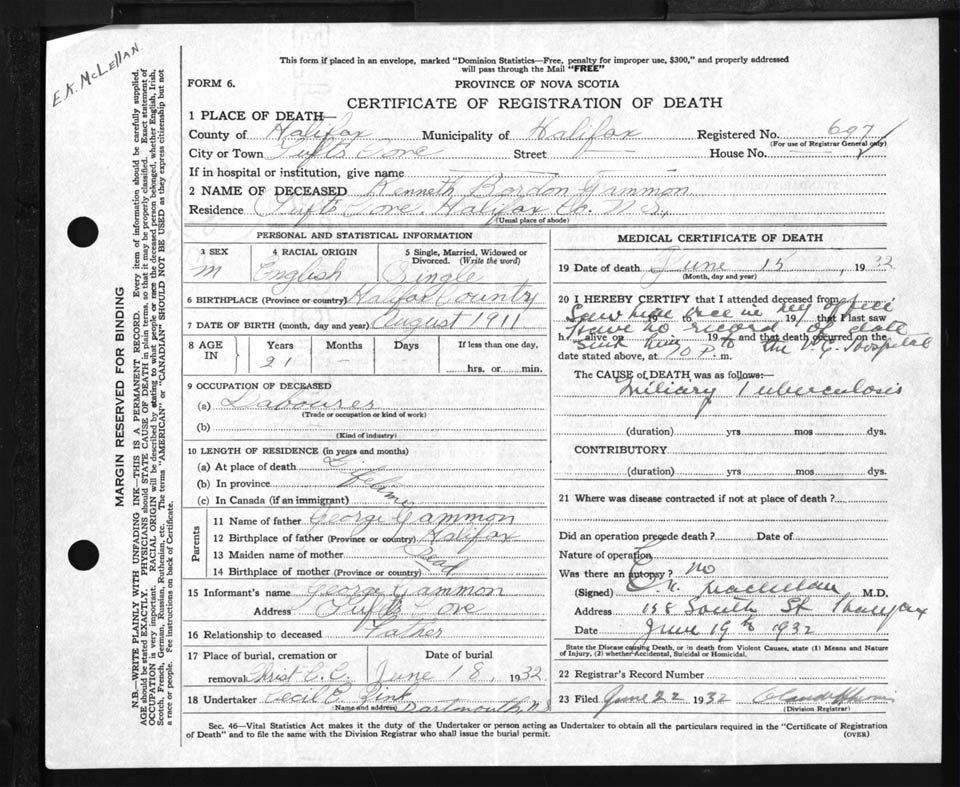 E.K. McLellan
This form if placed in an envelope, marked "Dominion Statistics—Free, penalty for improper use, $300," and properly addressed
will pass through the Mail "FREE"
FORM 6.
PROVINCE OF NOVA SCOTIA
CERTIFICATE OF REGISTRATION OF DEATH
1 PLACE OF DEATH—
County of Halifax Municipality of Halifax Registered No. 607
(For use of Registrar General only)
City or Town Tufts Cove Street — House No. —
If in hospital or institution, give name — —
2 NAME OF DECEASED Kenneth Bordon Gammon
Residence Tufts Cove. Halifax Co. N.S.,
(Usual place of abode)
PERSONAL AND STATISTICAL INFORMATION
3 SEX 4 RACIAL ORIGIN 5 Single, Married, Widowed or
Divorced. (Write the word)
M English Single
6 BIRTHPLACE (Province or country) Halifax County
7 DATE OF BIRTH (month, day and year) August 1911
8 AGE IN Years Months Days If less than one day,
21 — hrs. or min.
9 OCCUPATION OF DECEASED
(a) Labourer
(Trade or occupation or kind of work)
(b)
(Kind of industry)
10 LENGTH OF RESIDENCE (in years and months)
(a) At place of death
(b) In province Lifetime
(c) In Canada (if an immigrant)
Parents
11 Name of father George Gammon
12 Birthplace of father (Province or country) Halifax
13 Maiden name of mother Dead
14 Birthplace of mother (Province or country)
15 Informant's name George Gammon
Address Tufts Cove
16 Relationship to deceased Father
17 Place of burial, cremation or Date of burial
removal Christ C.C. June 18, 1932
18 Undertaker Cecil E. Zink
(Name and address) Dartmouth, N.S.
MEDICAL CERTIFICATE OF DEATH
19 Date of death June 15, 1932
(Month, day and year)
20 I HEREBY CERTIFY that I attended deceased from
Saw him once in my office
19 to 19 that I last saw
I have no record of date
h alive on 19 and that death occurred on the
Sent him to the V.G. Hospital
date stated above, at 10 P. m.
The CAUSE of DEATH was as follows:—
Miliary Tuberculosis
(duration) yrs mos dys.
CONTRIBUTORY
(duration) yrs mos dys.
21 Where was disease contracted if not at place of death?
Did an operation precede death? Date of
Nature of operation
Was there an autopsy? no
(Signed) E. K. MacLellan M.D.
Address 158 South St Halifax
Date June 19th 1932
State the Disease causing Death, or in death from Violent Causes, state (1) Means and Nature
of Injury, (2) whether Accidental, Suicidal or Homicidal.
22 Registrar's Record Number
23 Filed June 22 1932
(Division Registrar)
Sec. 46—Vital Statistics Act makes it the duty of the Undertaker or person acting as Undertaker to obtain all the particulars required in the "Certificate of Registration
of Death" and to file the same with the Division Registrar who shall issue the burial permit. (OVER)
MARGIN RESERVED FOR BINDING
N.B.—WRITE PLAINLY WITH UNFADING INK—THIS IS A PERMANENT RECORD. Every item of information should be carefully supplied.
AGE should be stated EXACTLY. PHYSICIANS should STATE CAUSE OF DEATH in plain terms, so that it may be properly classified. Exact statement of
OCCUPATION is very important. RACIAL ORIGIN will be described by stating to what people or race the deceased person belonged, whether English, Irish,
Scotch, French, German, Russian, Ruthenian, etc. The terms "AMERICAN" or "CANADIAN" SHOULD NOT BE USED as they express citizenship but not
a race or people. Fee instructions on back of Certificate.